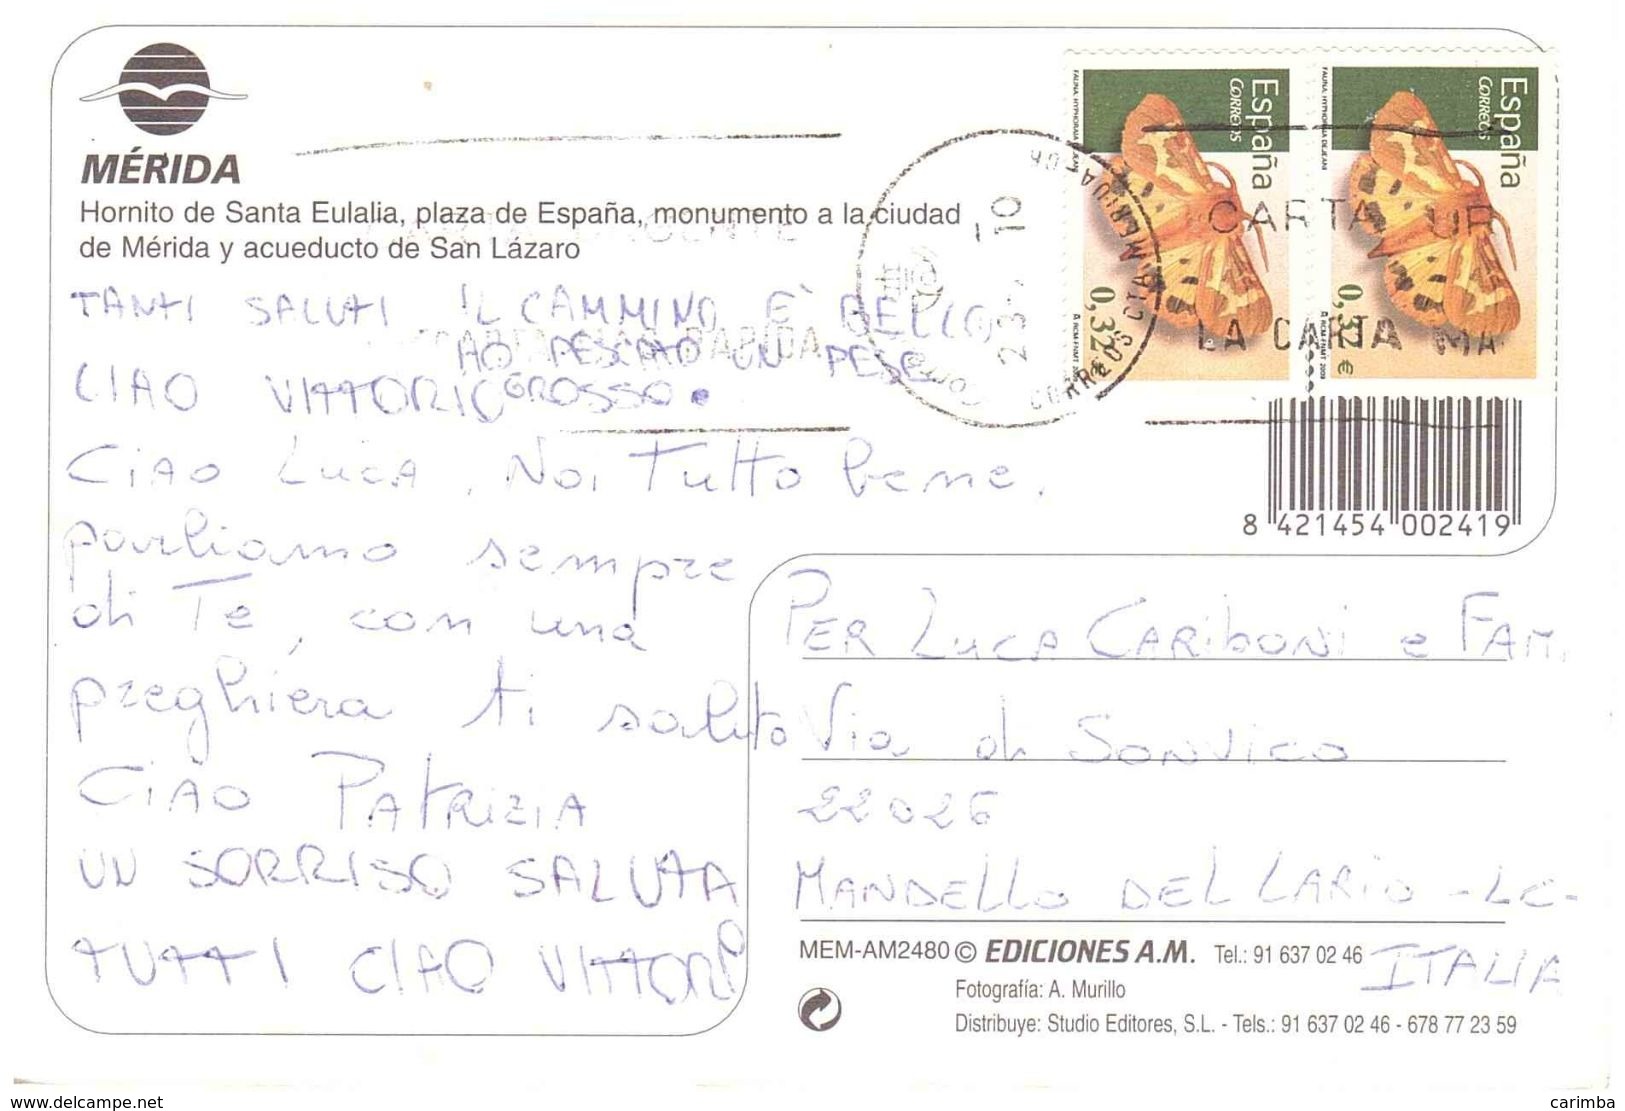 MÉRIDA
Hornito de Santa Eulalia, plaza de España, monumento a la ciudad
de Mérida y acueducto de San Lázaro
TANTI SALUTI IL CAMMINO E' BELLO
HO PESCATO UN PESCE
CIAO VITTORIO GROSSO.
CIAO LUCA, Noi Tutto bene,
parliamo sempre
di Te, con una
preghiera ti saluto
CIAO PATRIZIA
UN SORRISO SALUTA
TUTTI CIAO VITTORI
España
CORREOS
FAUNA. HYPHORAIA DEJEANI
0,32 €
España
CORREOS
FAUNA. HYPHORAIA DEJEANI
0,32 €
CARTA UR
LA CARTA MA
CORREOS CTA MERIDA
23
10
8 421454 002419
PER LUCA CARIBONI e FAM.
Via di SONVICO
22026
MANDELLO DEL LARIO -LC-
ITALIA
MEM-AM2480 © EDICIONES A.M. Tel.: 91 637 02 46
Fotografía: A. Murillo
Distribuye: Studio Editores, S.L. - Tels.: 91 637 02 46 - 678 77 23 59
www.delcampe.net
carimba